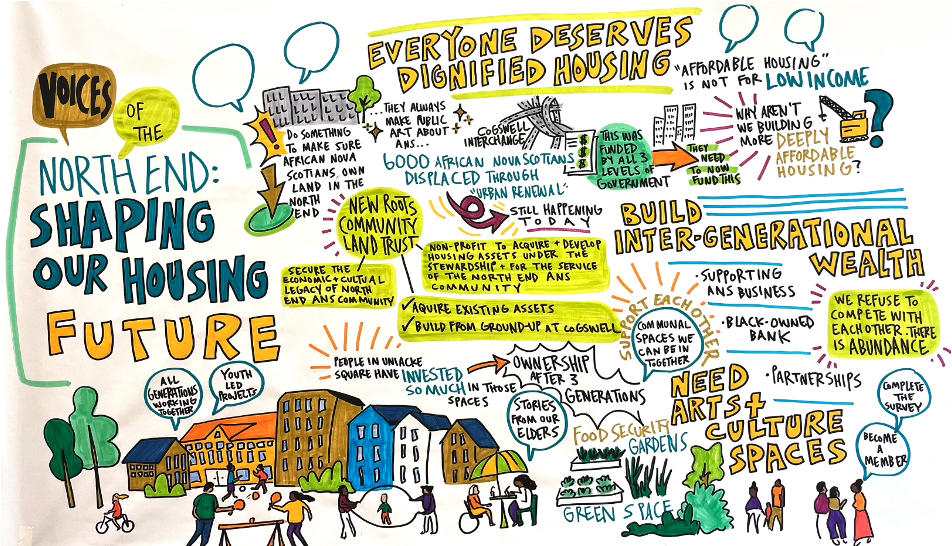 VOICES
OF
THE
NORTH END:
SHAPING
OUR HOUSING
FUTURE
EVERYONE DESERVES
DIGNIFIED HOUSING
"AFFORDABLE HOUSING"
IS NOT FOR LOW INCOME
!
DO SOMETHING
TO MAKE SURE
AFRICAN NOVA
SCOTIANS OWN
LAND IN THE
NORTH
END
THEY ALWAYS
MAKE PUBLIC
ART ABOUT
ANS...
COGSWELL
INTERCHANGE
6000 AFRICAN NOVA SCOTIANS
DISPLACED THROUGH
"URBAN RENEWAL"
STILL HAPPENING
TODAY
$
$
$
THIS WAS
FUNDED
BY ALL 3
LEVELS OF
GOVERNMENT
THEY
NEED
TO NOW
FUND THIS
WHY AREN'T
WE BUILDING
MORE DEEPLY
AFFORDABLE
HOUSING?
?
NEW ROOTS
COMMUNITY
LAND TRUST
SECURE THE
ECONOMIC + CULTURAL
LEGACY OF NORTH
END ANS COMMUNITY
NON-PROFIT TO ACQUIRE + DEVELOP
HOUSING ASSETS UNDER THE
STEWARDSHIP + FOR THE SERVICE
OF THE NORTH END ANS
COMMUNITY
✓ AQUIRE EXISTING ASSETS
✓ BUILD FROM GROUND-UP AT COGSWELL
BUILD
INTER-GENERATIONAL
WEALTH
· SUPPORTING
ANS BUSINESS
· BLACK-OWNED
BANK
· PARTNERSHIPS
WE REFUSE TO
COMPETE WITH
EACHOTHER. THERE
IS ABUNDANCE.
SUPPORT EACH OTHER
COMMUNAL
SPACES WE
CAN BE IN
TOGETHER
PEOPLE IN UNIACKE
SQUARE HAVE INVESTED
SO MUCH IN THOSE
SPACES
OWNERSHIP
AFTER 3
GENERATIONS
NEED
ARTS +
CULTURE
SPACES
ALL
GENERATIONS
WORKING
TOGETHER
YOUTH
LED
PROJECTS
STORIES
FROM OUR
ELDERS
FOOD SECURITY
GARDENS
GREEN SPACE
COMPLETE
THE
SURVEY
BECOME
A
MEMBER